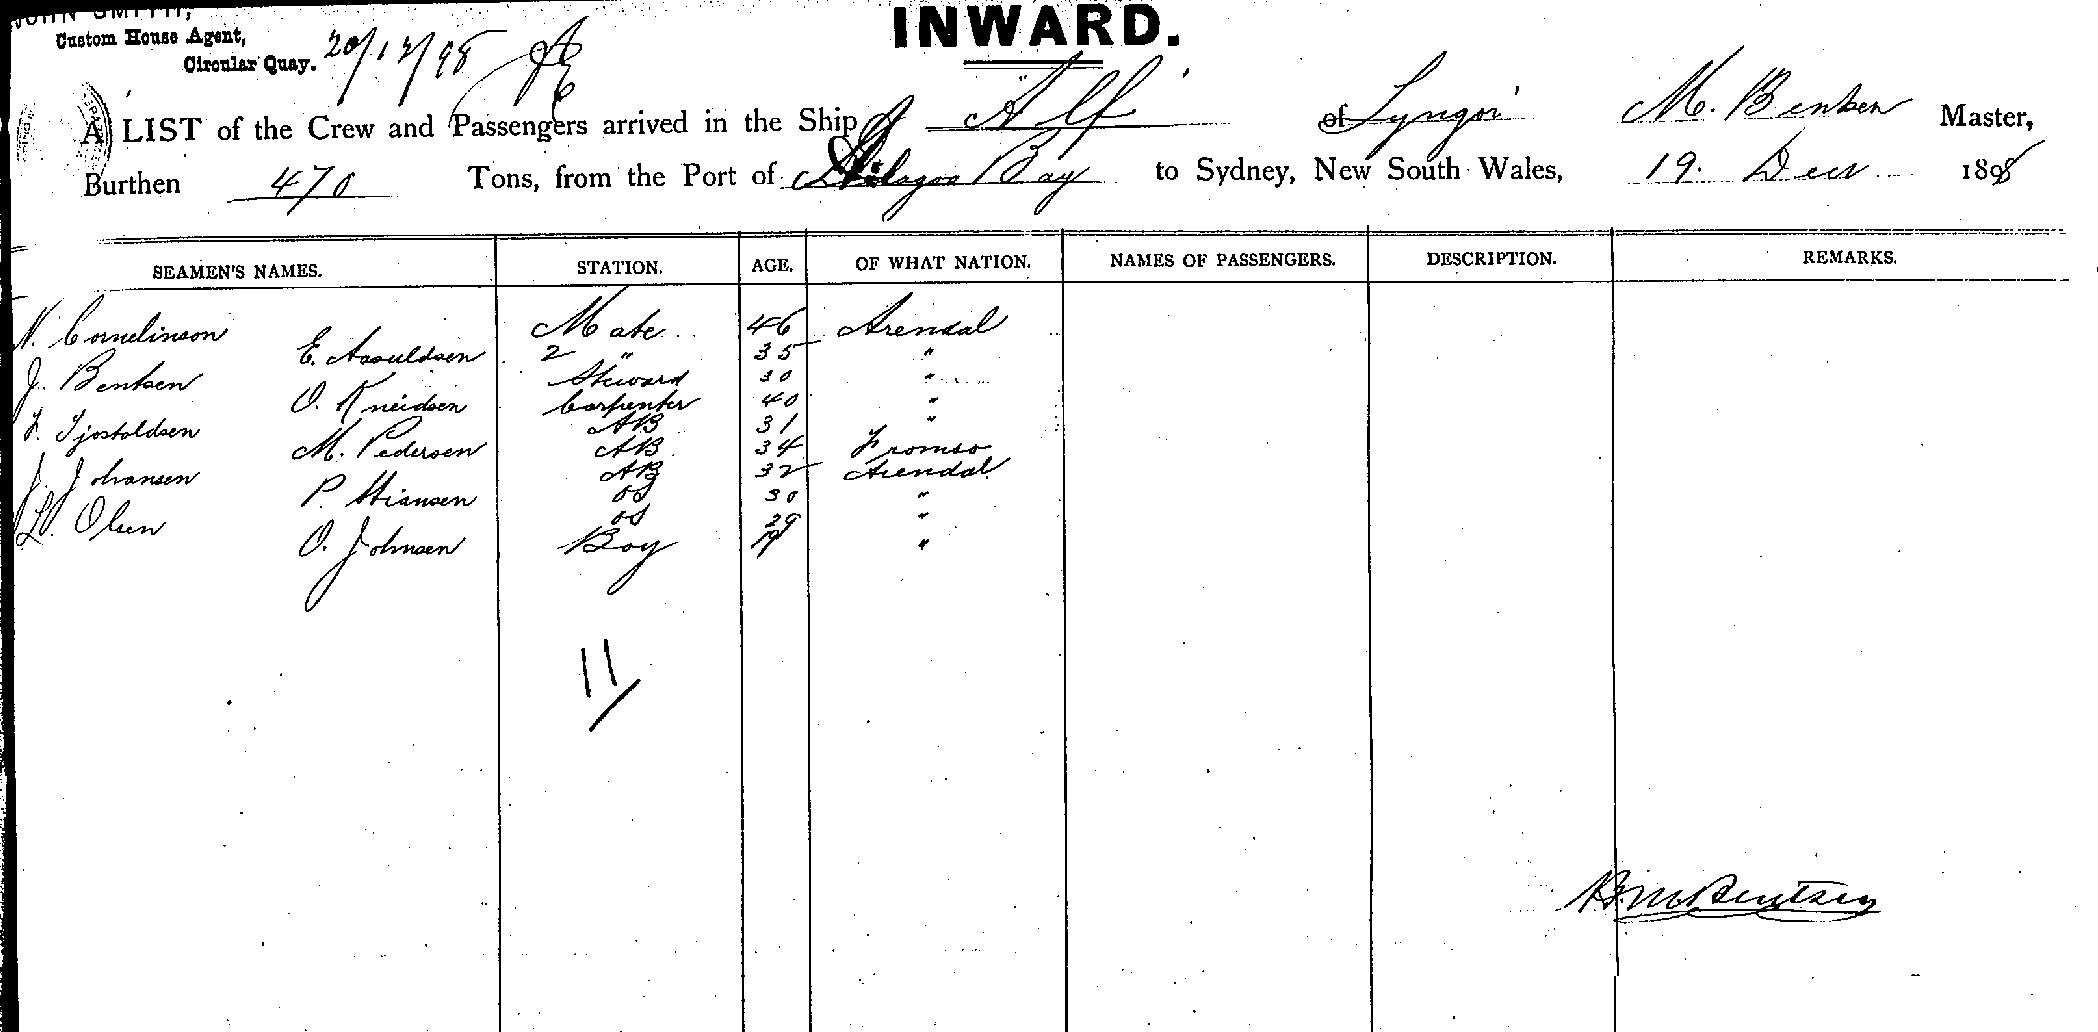 JOHN SMITH,
Custom House Agent,
Circular Quay. 20/12/98
INWARD.
A LIST of the Crew and Passengers arrived in the Ship Alf of Lyngör M. Bentsen Master,
Burthen 470 Tons, from the Port of Delagoa Bay to Sydney, New South Wales, 19. Decr 1898
SEAMEN'S NAMES. STATION. AGE. OF WHAT NATION. NAMES OF PASSENGERS. DESCRIPTION. REMARKS.
N. Cornelinson Mate 46 Arendal
E. Aasuldsen 2 " 35 "
J. Bentsen Steward 30 "
O. Kneidsen Carpenter 40 "
Tjostoldsen AB 31 "
M. Pedersen AB 34 Tromso
J. Johansen AB 32 Arendal
P. Stiansen OS 30 "
Olsen OS 29 "
O. Johnsen Boy "
11
M Bentsen